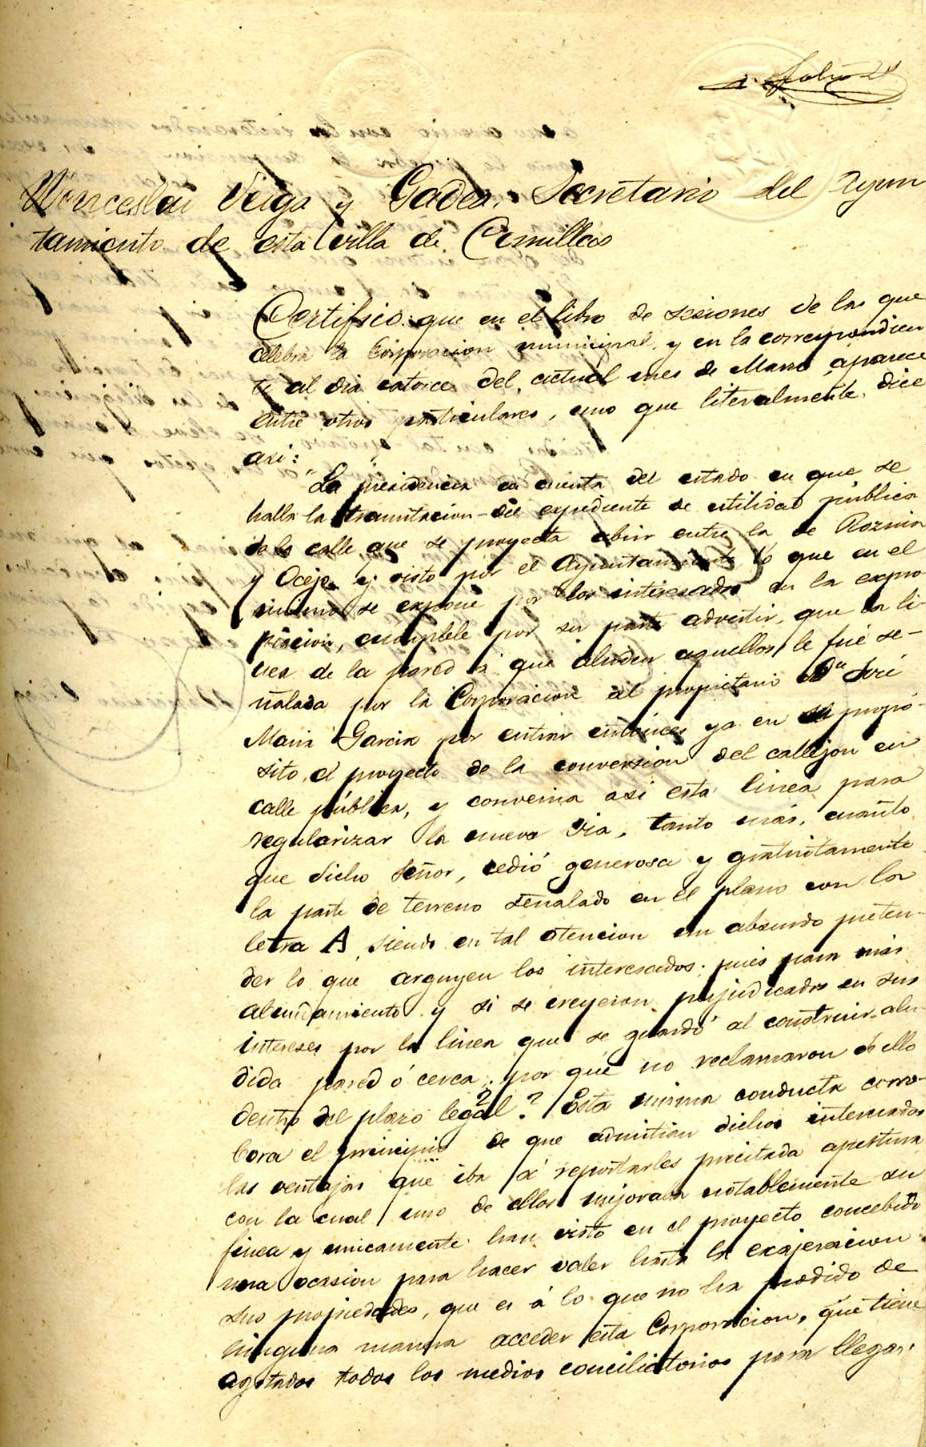 Folio 21
Wenceslao Veiga y Gadea, Secretario del Ayun
tamiento de esta villa de Comillas
Certifico: que en el libro de sesiones de las que
celebra la Corporacion municipal, y en la correspondien
te al dia catorce del actual mes de Marzo aparece
entre otros particulares, uno que literalmente dice
asi:
"La presidencia da cuenta del estado en que se
halla la tramitacion del expediente de utilidad pública
de la calle que se proyecta abrir entre la de
y Oceja y visto por el Ayuntamiento lo que en el
mismo se expone por los interesados en la expro
piacion, cumplele por su parte advertir, que la li-
nea de la pared á que aluden aquellos le fué se-
ñalada por la Corporacion al propietario Dn José
Maria Garcia por entrar entónces ya en su propó-
sito, el proyecto de la conversion del callejon en
calle pública, y convenia asi esta linea para
regularizar la nueva via, tanto más, cuanto
que dicho Señor, cedió generosa y gratuitamente
la parte de terreno señalado en el plano con la
letra A, siendo en tal atencion un absurdo preten-
der lo que arguyen los interesados; pues para más
abundamiento y si se creyeron perjudicados en sus
intereses por la linea que se guardó al construir alu-
dida pared ó cerca ¿por qué no reclamaron de ello
dentro del plazo legal? Esta misma conducta corro-
bora el principio de que admitian dichos interesados
las ventajas que iba á reportarles precitada apertura
con la cual uno de ellos mejoraba notablemente su
finca y unicamente han visto en el proyecto concebido
una ocasion para hacer valer hasta la exajeracion
sus propiedades, que es á lo que no ha podido de
ninguna manera acceder esta Corporacion, que tiene
agotados todos los medios conciliatorios para llegar